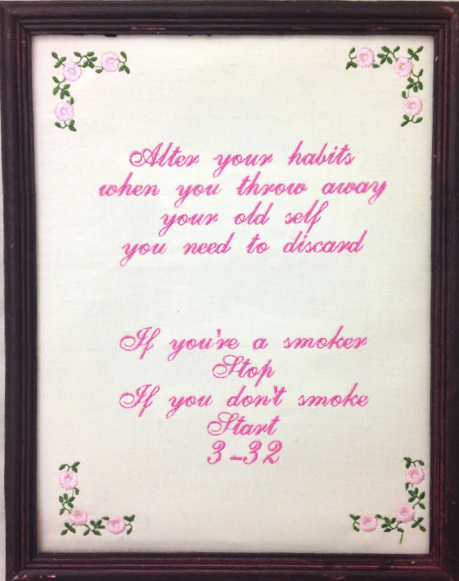 Alter your habits
when you throw away
your old self
you need to discard
If you're a smoker
Stop
If you don't smoke
Start
3-32